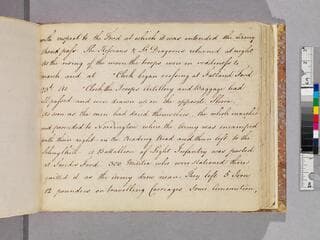 with respect to the Ford at which it was intended the Army
should pass. The Hessians & Lt. Dragoons returned at night
At the rising of the moon the troops were in readiness to
march and at Clock began crossing at Fatland Ford
23d. At Clock the Troops Artillery and Baggage had
all passed and were drawn up on the opposite Shore.
As soon as the men had dried themselves, the whole marched
and proceeded to Norrington where the Army was encamped
with their right on the Reading Road and their left to the
Schuylkill. A Battalion of Light Infantry was posted
at Swedes Ford. 300 Militia who were stationed there
quitted it as the Army drew near. They left 5 Iron
12 pounders on travelling Carriages Some Ammunition,